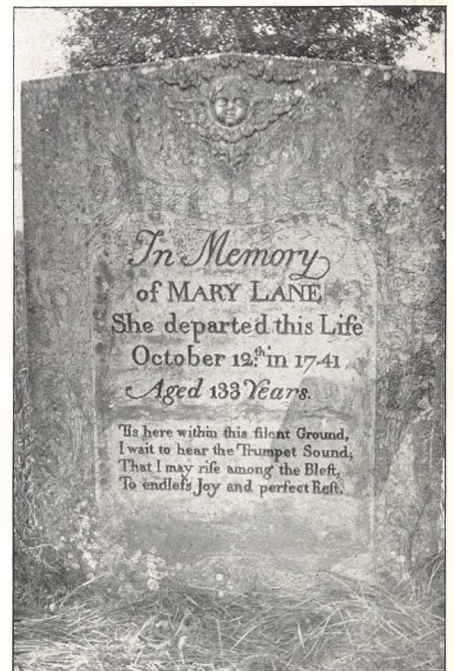 In Memory
of MARY LANE
She departed this Life
October 12.th in 1741
Aged 133 Years.
'Tis here within this ſilent Ground,
I wait to hear the Trumpet Sound;
That I may riſe among the Bleſt,
To endleſs Joy and perfect Reſt.